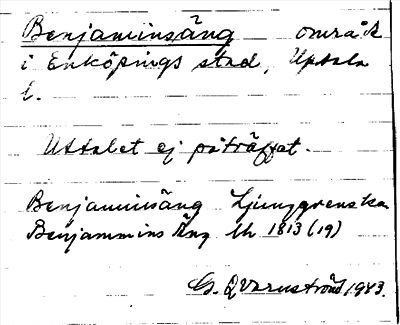 Benjaminsäng område
i Enköpings stad, Uppsala
l.
Uttalet ej påträffat.
Benjaminsäng Ljunggrenska
Benjammins Äng Uh 1813 (19)
G. Qvarnström 1943.